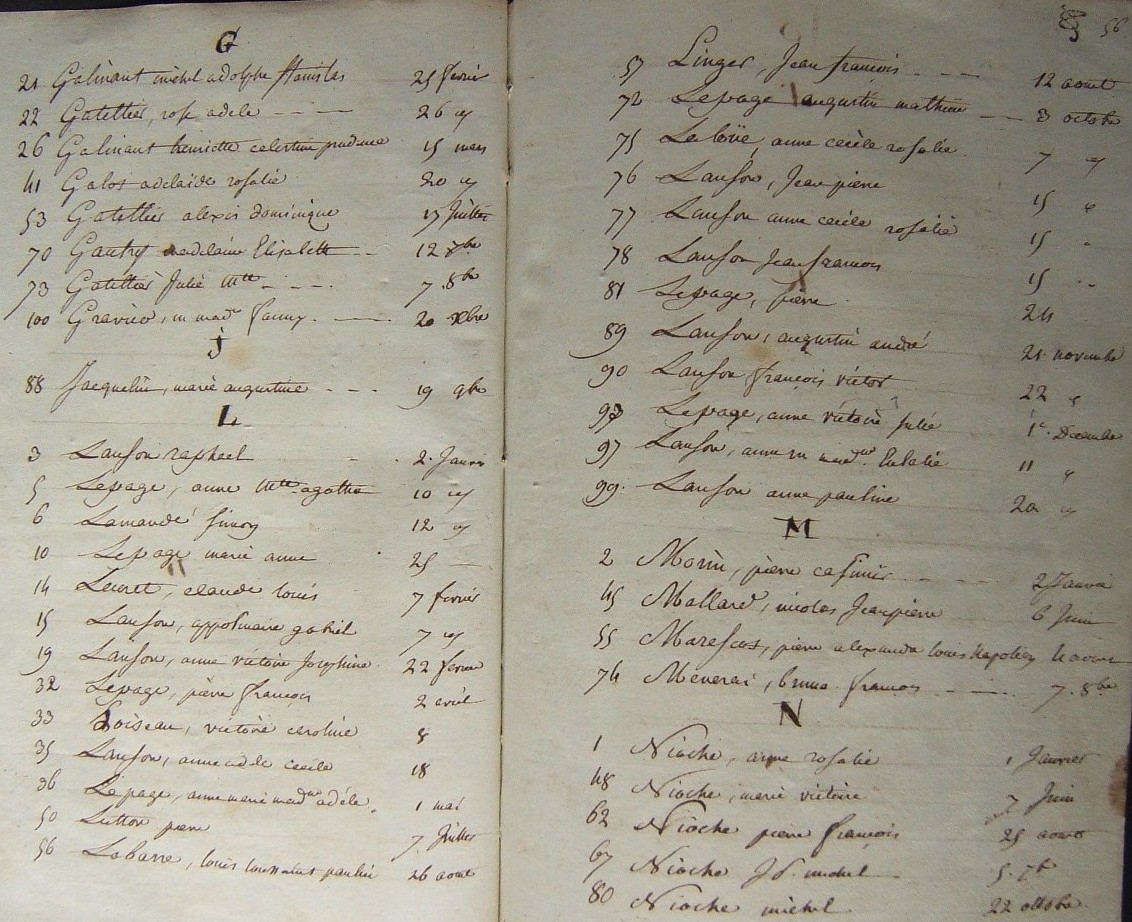 G
21 Galinant michel adolphe stanislas 25 fevrier
22 Gatellier, rose adele 26 
26 Galinant henriette celestine prudence 15 mars
41 Galos adelaide rosalie 20
53 Gatellier alexis dominique 17 Juillet
70 Gautry madelaine Elisabeth 12 7bre
73 Gatellier Julie Mtte 7. 8bre
100 m made fanny 20 xbre
J
88 Jacquelin, marie augustine 19 9bre
L
3 Lanson raphael 2. Janvier
5 Lepage, anne Mtte agathe 10
6 Lamandé simon 12
10 Lepage marie anne 25
14 claude louis 7 fevrier
15 Lanson, appolinaire gabriel 7
19 Lanson, anne victoire Josephine 22 fevrier
32 Lepage, pierre françois 2 avril
33 Loiseau, victoire caroline 8
35 Lanson, anne cecile 18
36 Lepage, anne marie made adéle 1 mai
50 Lutton pierre 7. Juillet
56 Labarre, louis toussaint paulin 26 aout
56
57 Linger, Jean françois 12 aout
72 Lepage augustin mathieu 3 octobre
75 anne cecile rosalie 7
76 Lanson, Jean pierre 15
77 Lanson anne cecile rosalie 15
78 Lanson Jean francois 15
81 Lepage, pierre 24
89 Lanson, augustin andré 21. novembre
90 Lanson françois victor 22
93 Lepage, anne victoire Julie 1er. Decembre
97 Lanson, anne m made Eulalie 11
99. Lanson anne pauline 20
M
2 Morin, pierre casimir 2 Janvier
45 Mallard, nicolas Jean pierre 6 Juin
55 Marescot, pierre alexandre louis Napoléon aout
74 bruno francois 7. 8bre
N
1 Nioche, anne rosalie 1 Janvier
48 Nioche, marie victoire 7 Juin
62 Nioche pierre françois 25 aout
67 Nioche Jh. michel 5. 7bre
80 Nioche michel 22 octobre